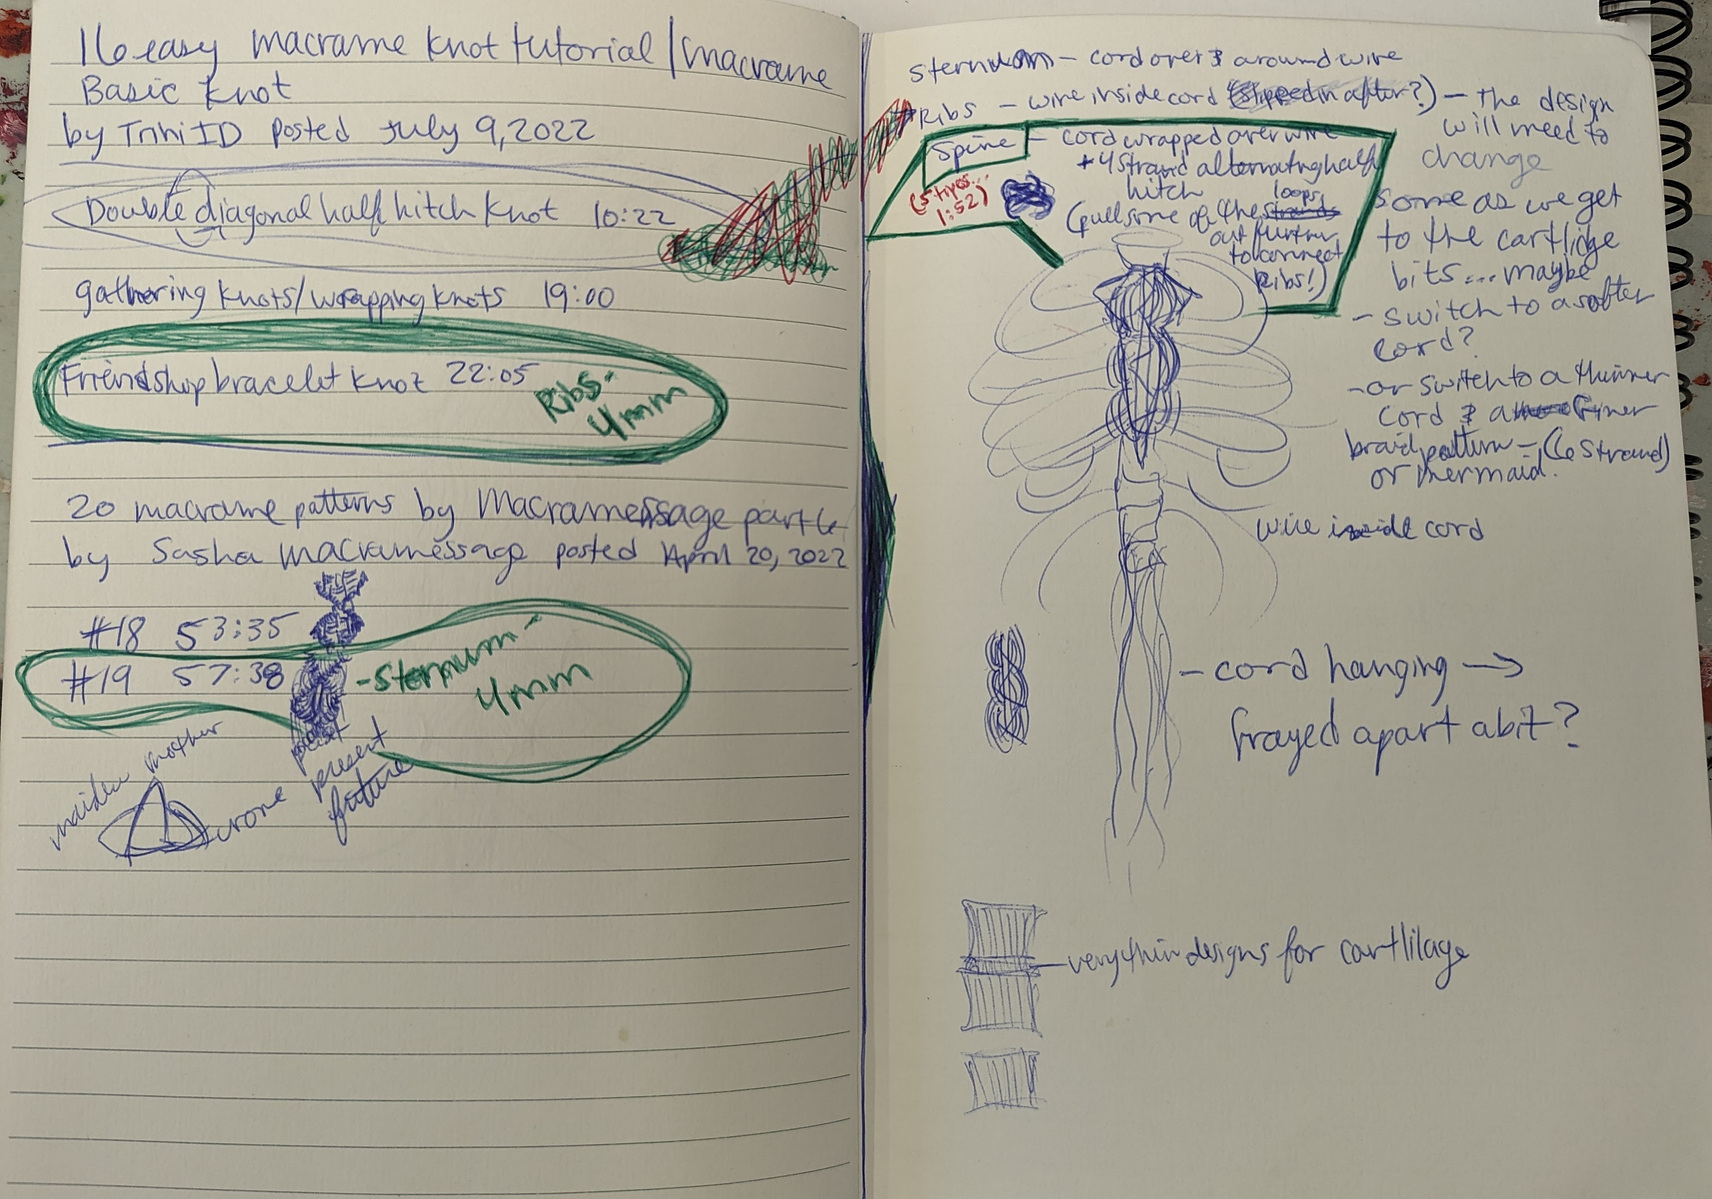 16 easy macrame knot tutorial / macrame
Basic knot
by TriniID posted July 9, 2022
Double diagonal half hitch knot 10:22
gathering knots/wrapping knots 19:00
Friendshop bracelet knot 22:05
Ribs-
4mm
20 macrame patterns by Macramessage part 6
by Sasha macramessage posted April 20, 2022
#18 53:35
#19 57:38
-Sternum-
4mm
maiden mother
crone
past
present
future
sternum - cord over & around wire
Ribs - wire inside cord (slipped in after?) - the design
will need to
change
Spine - cord wrapped over wire
+ 4 strand alternating half
hitch
(5 tives...
1:52)
(pull some of the strands loops
out further
to connect
Ribs!)
Some as we get
to the cartlidge
bits... maybe
- switch to a softer
cord?
- or switch to a thinner
cord & a finer
braid pattern - (6 strand)
or mermaid.
wire inside cord
- cord hanging →
frayed apart abit?
- very thin designs for cartlilage